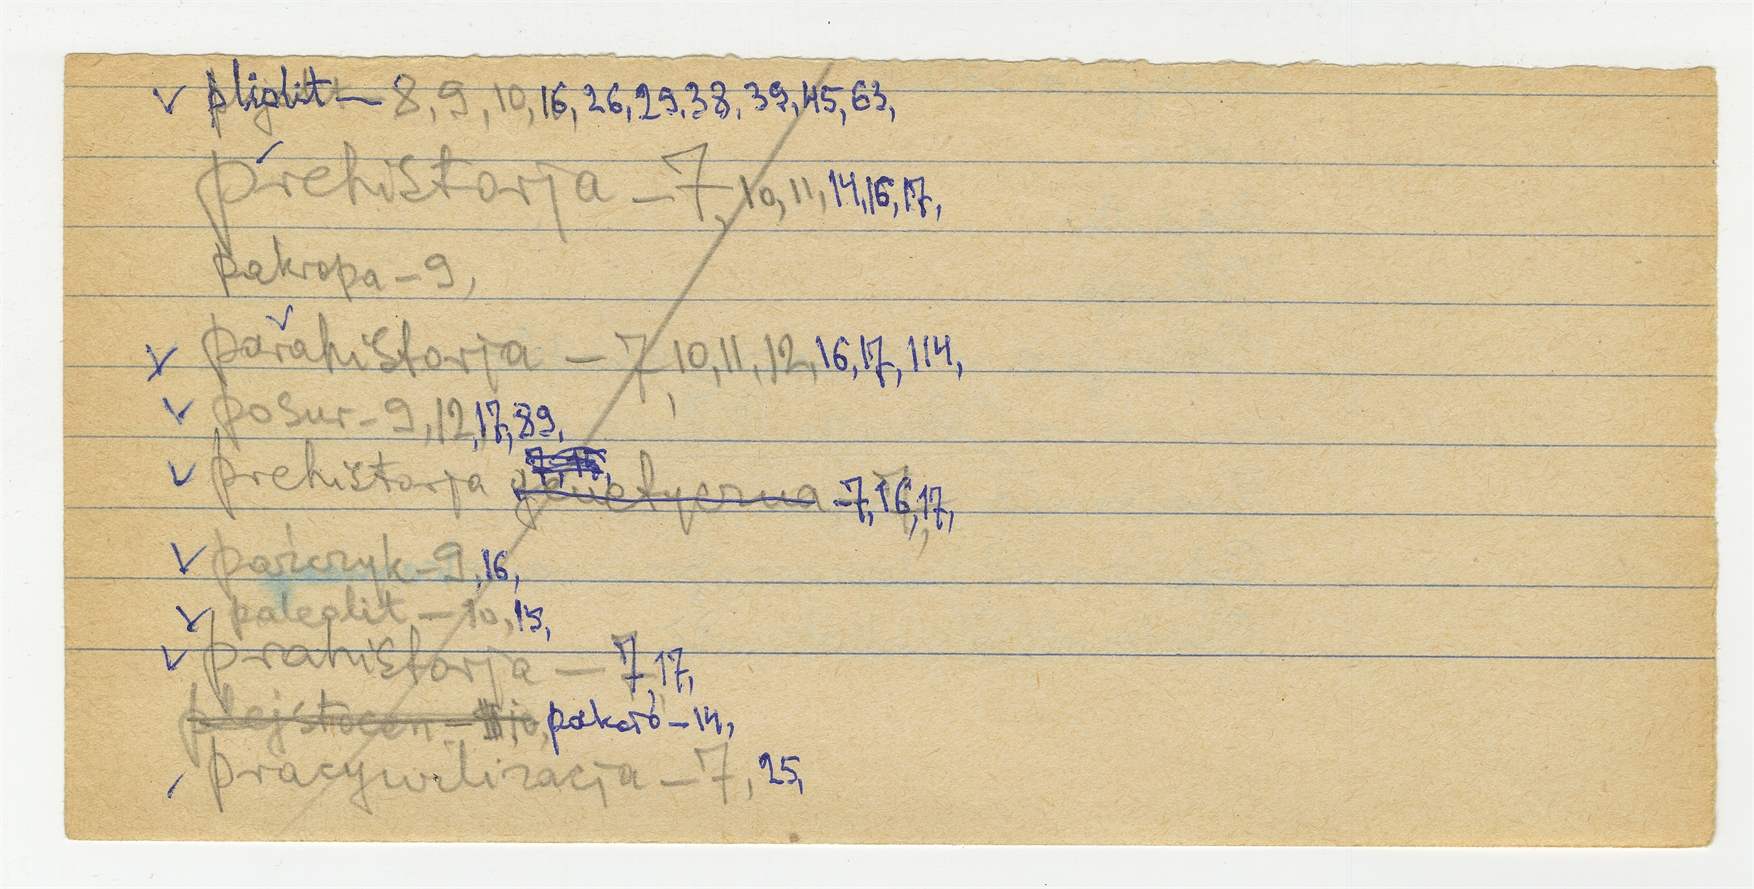 ✓ pliglit – 8, 9, 10, 16, 26, 29, 38, 39, 45, 63,
prehistorja – 7, 10, 11, 14, 16, 17,
pakropa – 9,
✓ parahistorja – 7, 10, 11, 12, 16, 17, 114,
✓ posur – 9, 12, 17, 89,
✓ prehistorja genetyczna – 7, 16, 17,
✓ parczyk – 9, 16,
✓ paleolit – 10, 15,
✓ prahistorja – 7, 17,
plejstocen – 10, – 14,
pracywilizacja – 7, 25,